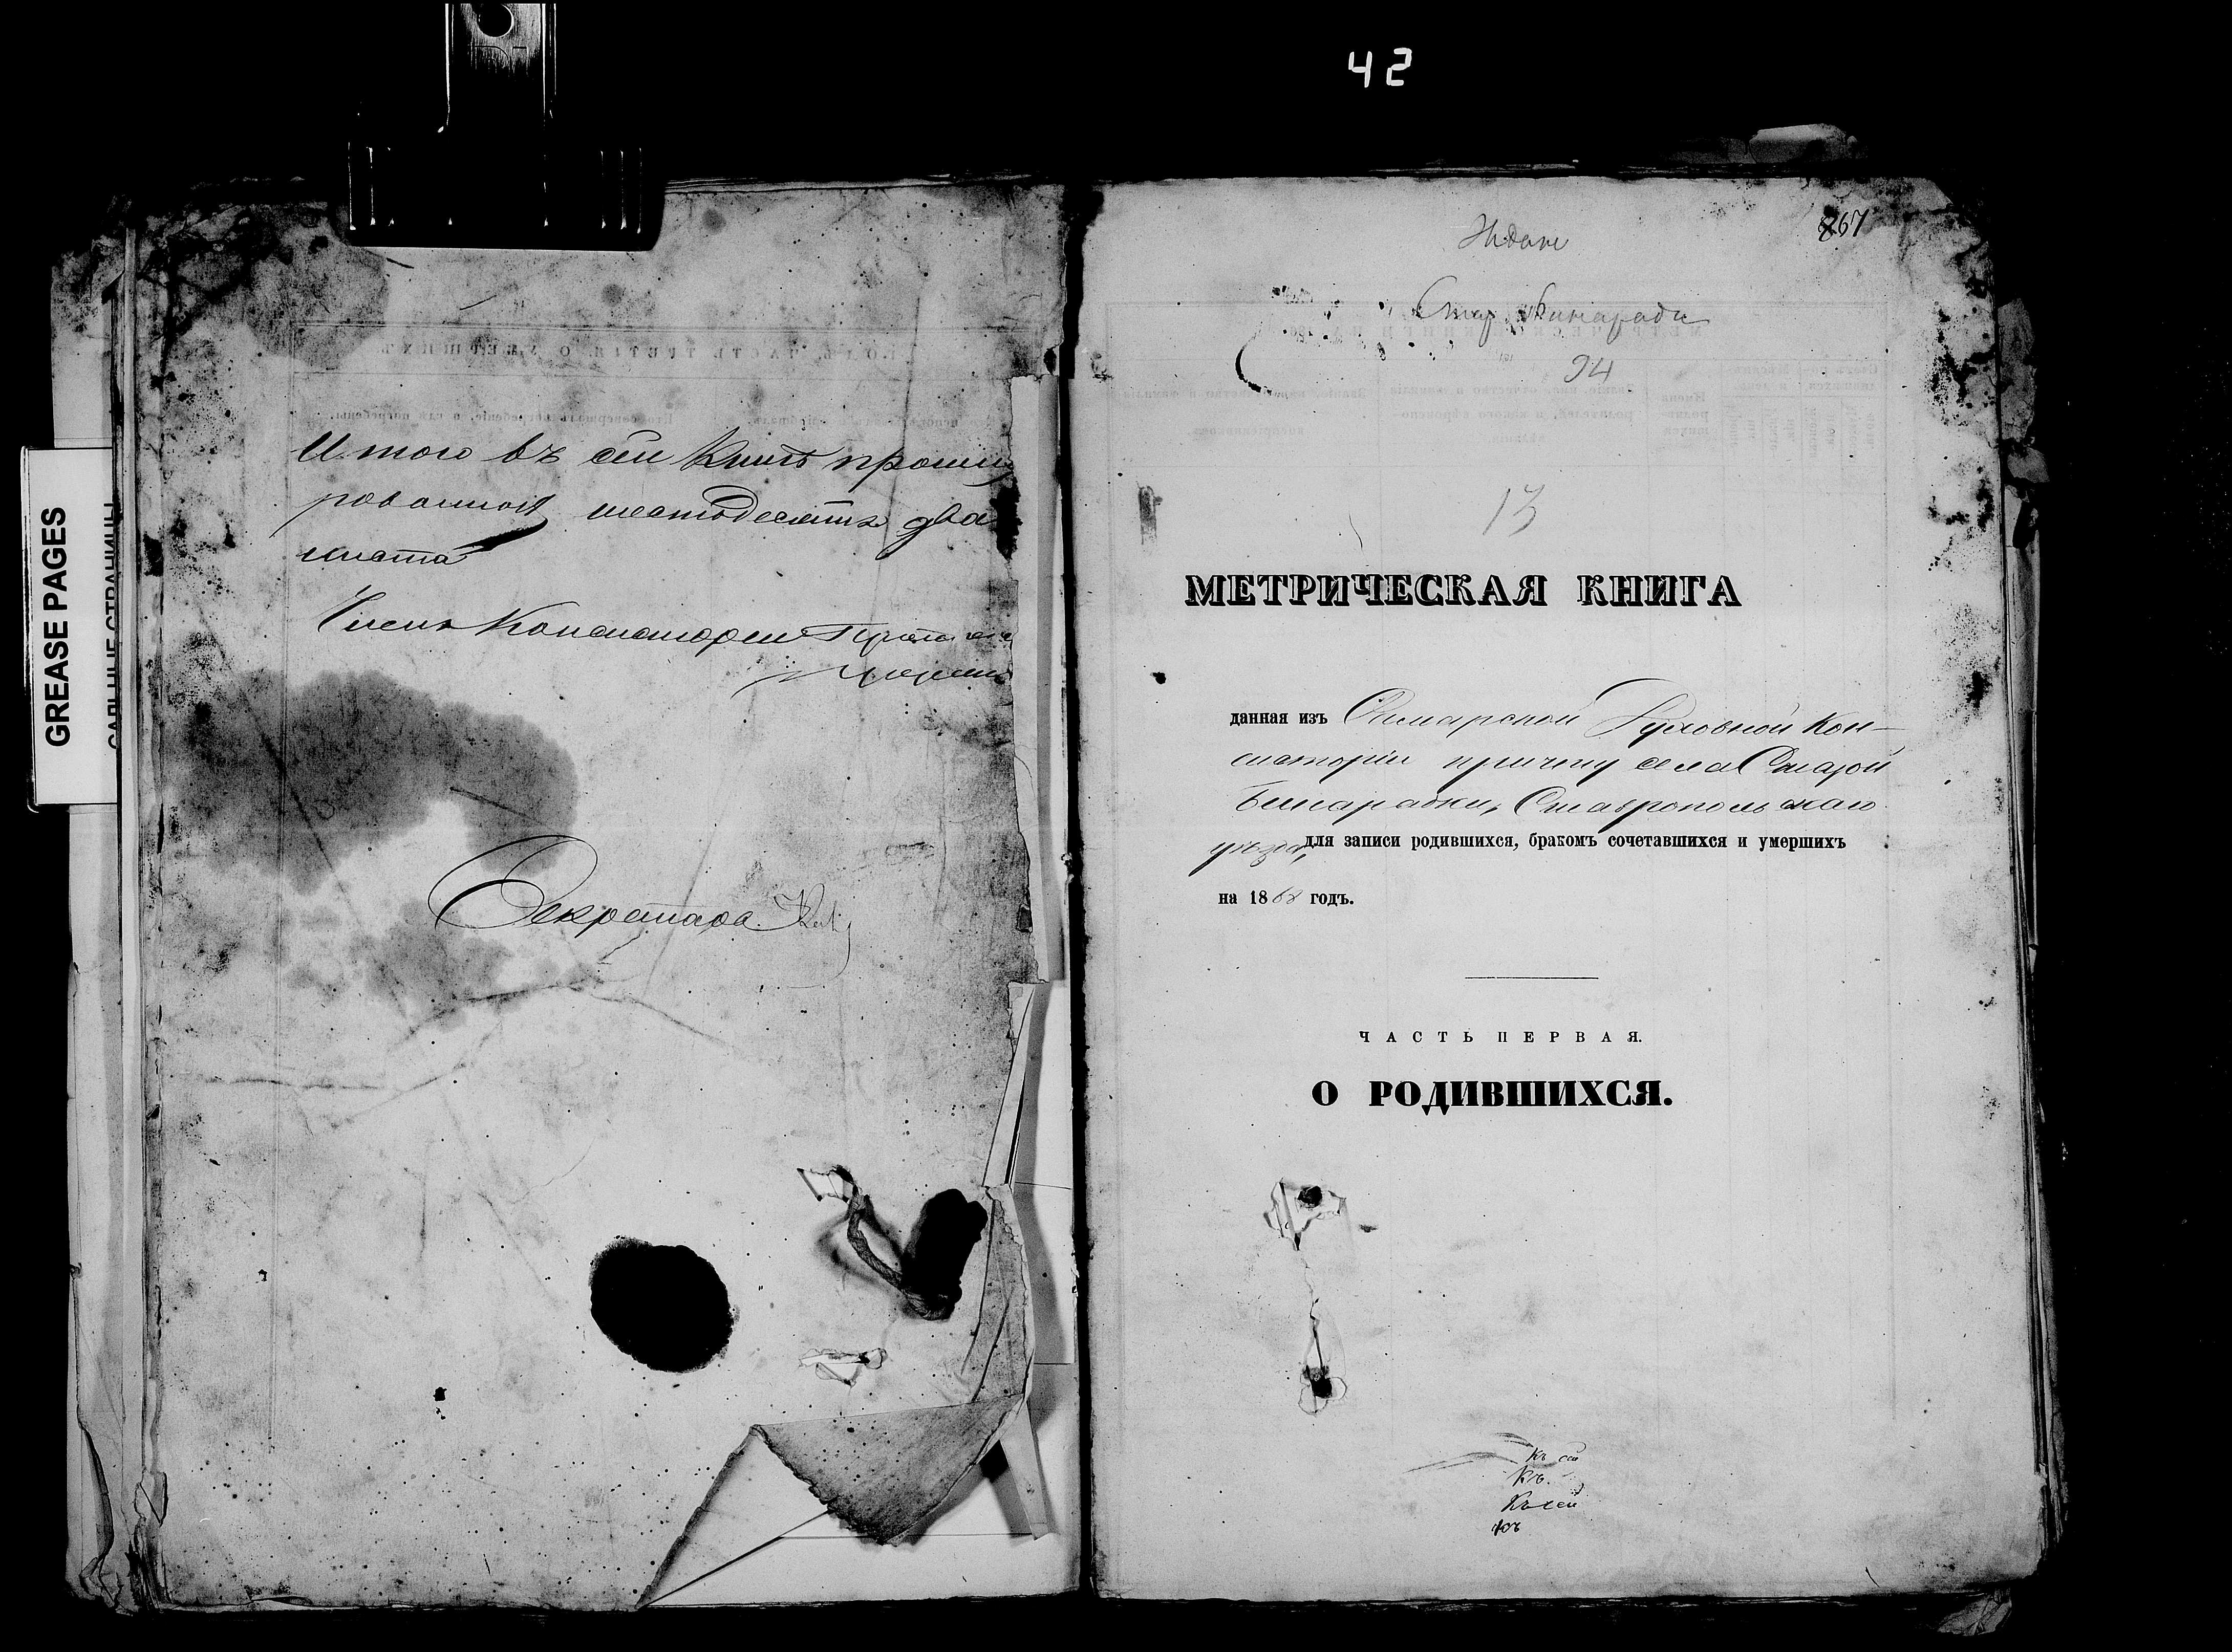 42
GREASE PAGES
САЛЬНЫЕ СТРАНИЦЫ
Итого въ сей Книгѣ прошну
рованной шестьдесятъ два
листа
Членъ Консисторіи
Секретарь
267
Стар Бинарадк
94
13
МЕТРИЧЕСКАЯ КНИГА
данная изъ Самарской Духовной Кон-
систоріи причту села Старой
Бинарадки, Ставропольскаго
уѣзда, для записи родившихся, бракомъ сочетавшихся и умершихъ
на 1868 годъ.
ЧАСТЬ ПЕРВАЯ.
О РОДИВШИХСЯ.
Къ сей
Къ.
Къ сей